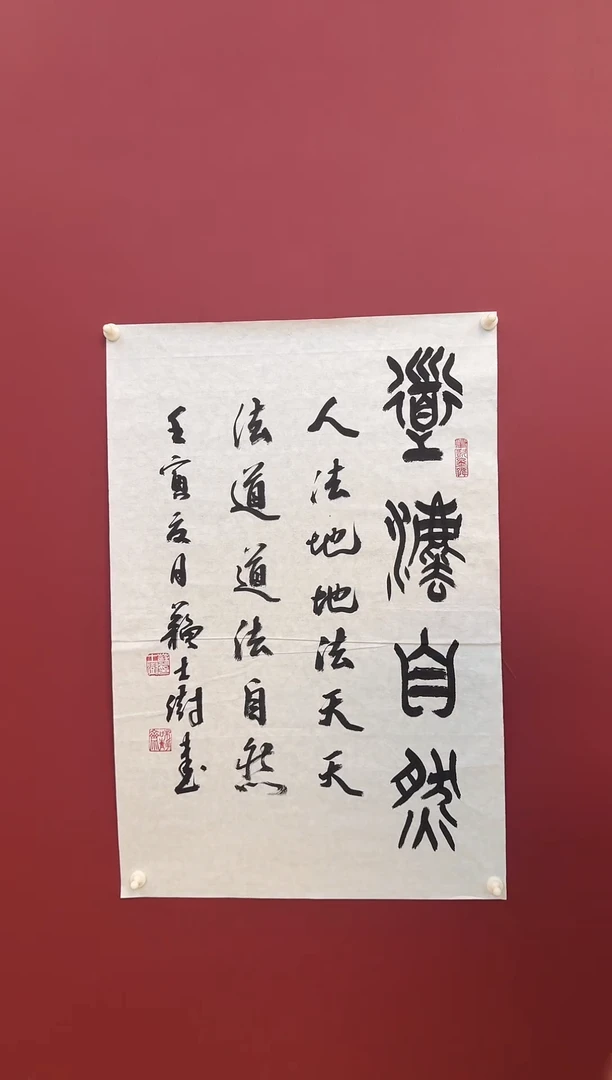 道法自然
人法地地法天天
法道道法自然
壬寅夏月苏士澍书